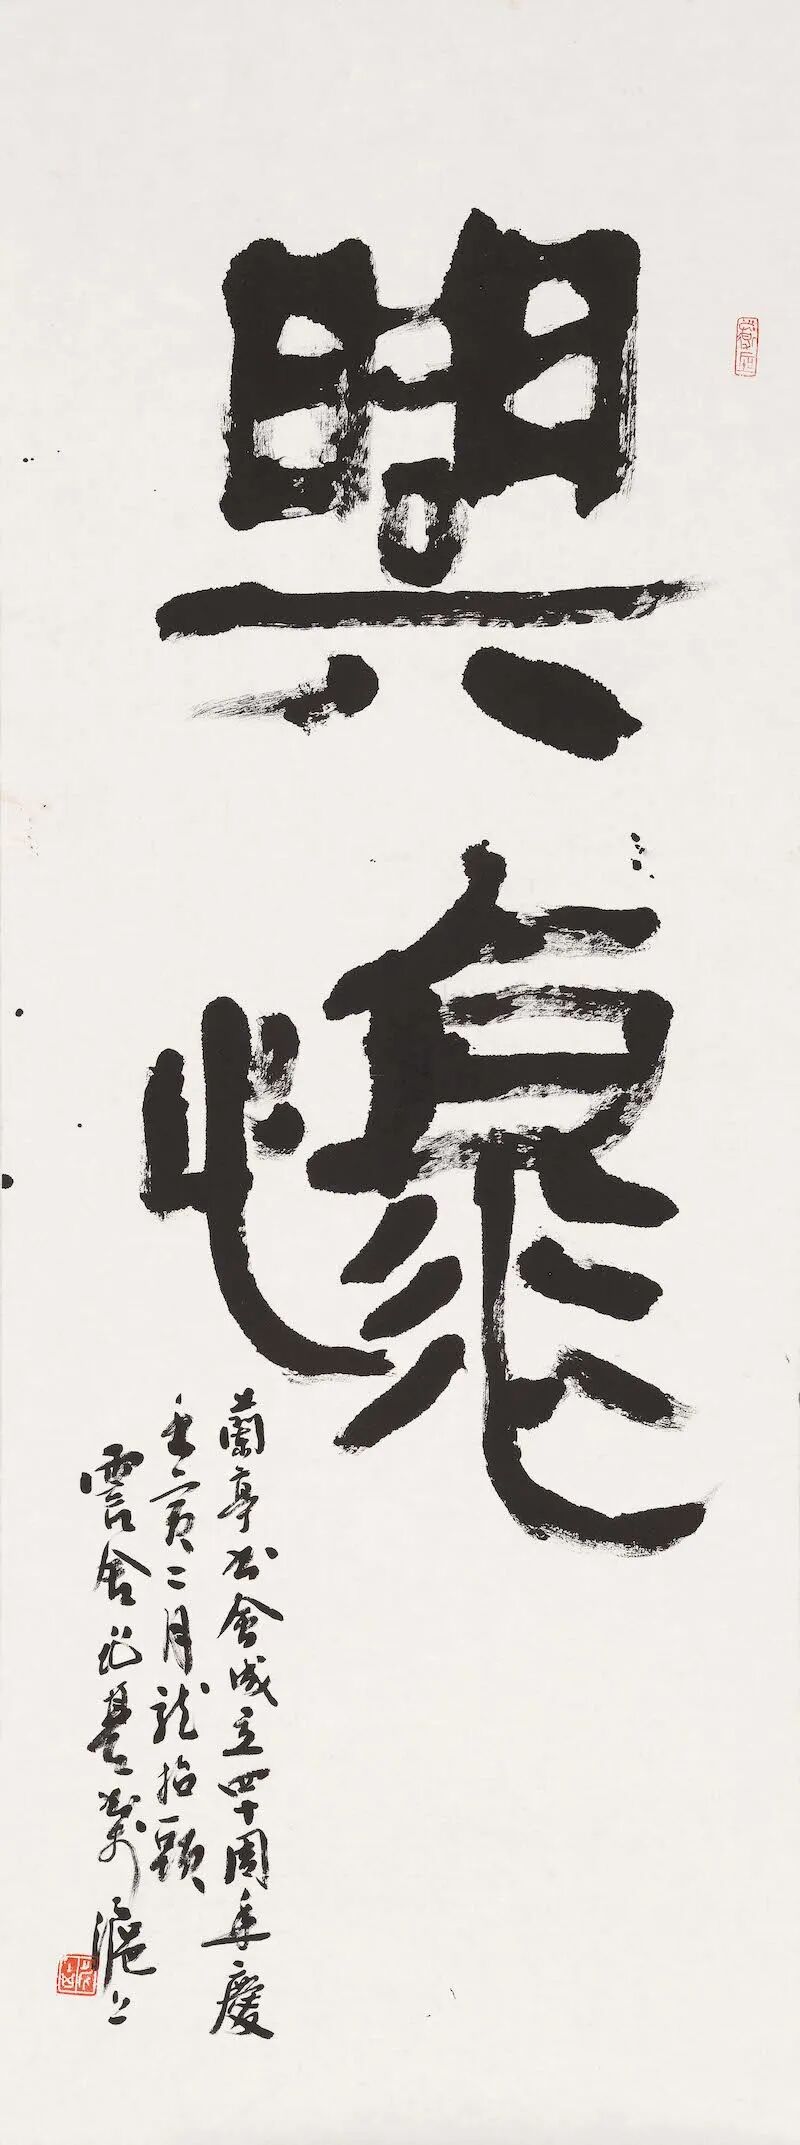 興懷
蘭亭书會成立四十周年慶
壬寅二月龍抬頭
雲舍
滬上